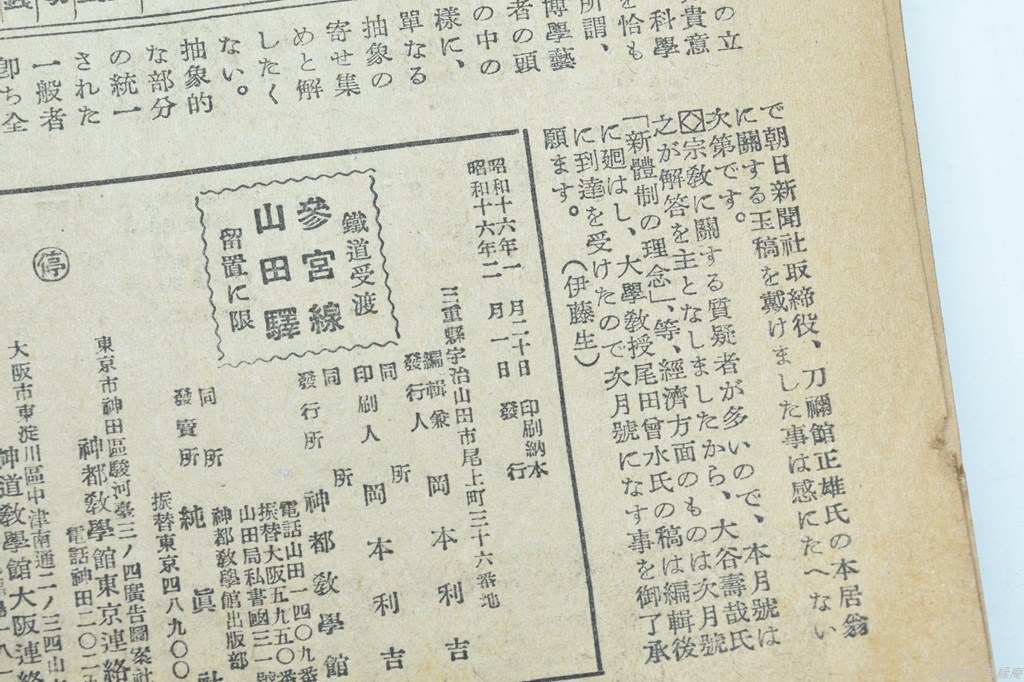 の立
貴意
科學
を恰も
所謂、
博學藝
者の頭
の中の
樣に、
單なる
抽象の
寄せ集
めと解
したく
ない。
抽象的
な部分
の統一
された
一般者
卽ち全
で朝日新聞社取締役、刀禰館正雄氏の本居翁
に關する玉稿を戴けました事は感にたへない
次第です。
◇宗敎に關する質疑者が多いので、本月號は
之が解答を主となしましたから、大谷壽哉氏
「新體制の理念」、等、經濟方面のものは次月號
に廻はし、大學敎授尾田曾水氏の稿は編輯後
に到達を受けたので次月號になす事を御了承
願ます。（伊藤生）
昭和十六年一月二十日 印刷納本
昭和十六年二月一日 發行
三重縣宇治山田市尾上町三十六番地
編輯兼
發行人 岡本利吉
同所
印刷人 岡本利吉
同所
發行所 神都敎學館
電話山田一四〇九番
振替大阪五九五〇番
山田局私書凾三一號
神都敎學館出版部
同所
發賣所 純眞社
振替東京四八九〇〇
東京市神田區駿河臺三ノ四廣吿圖案社
神都敎學館東京連絡
電話神田二〇二
大阪市東淀川區中津南通二ノ三四
神道敎學館大阪連絡
鐵道受渡
參宮線
山田驛
留置に限
停